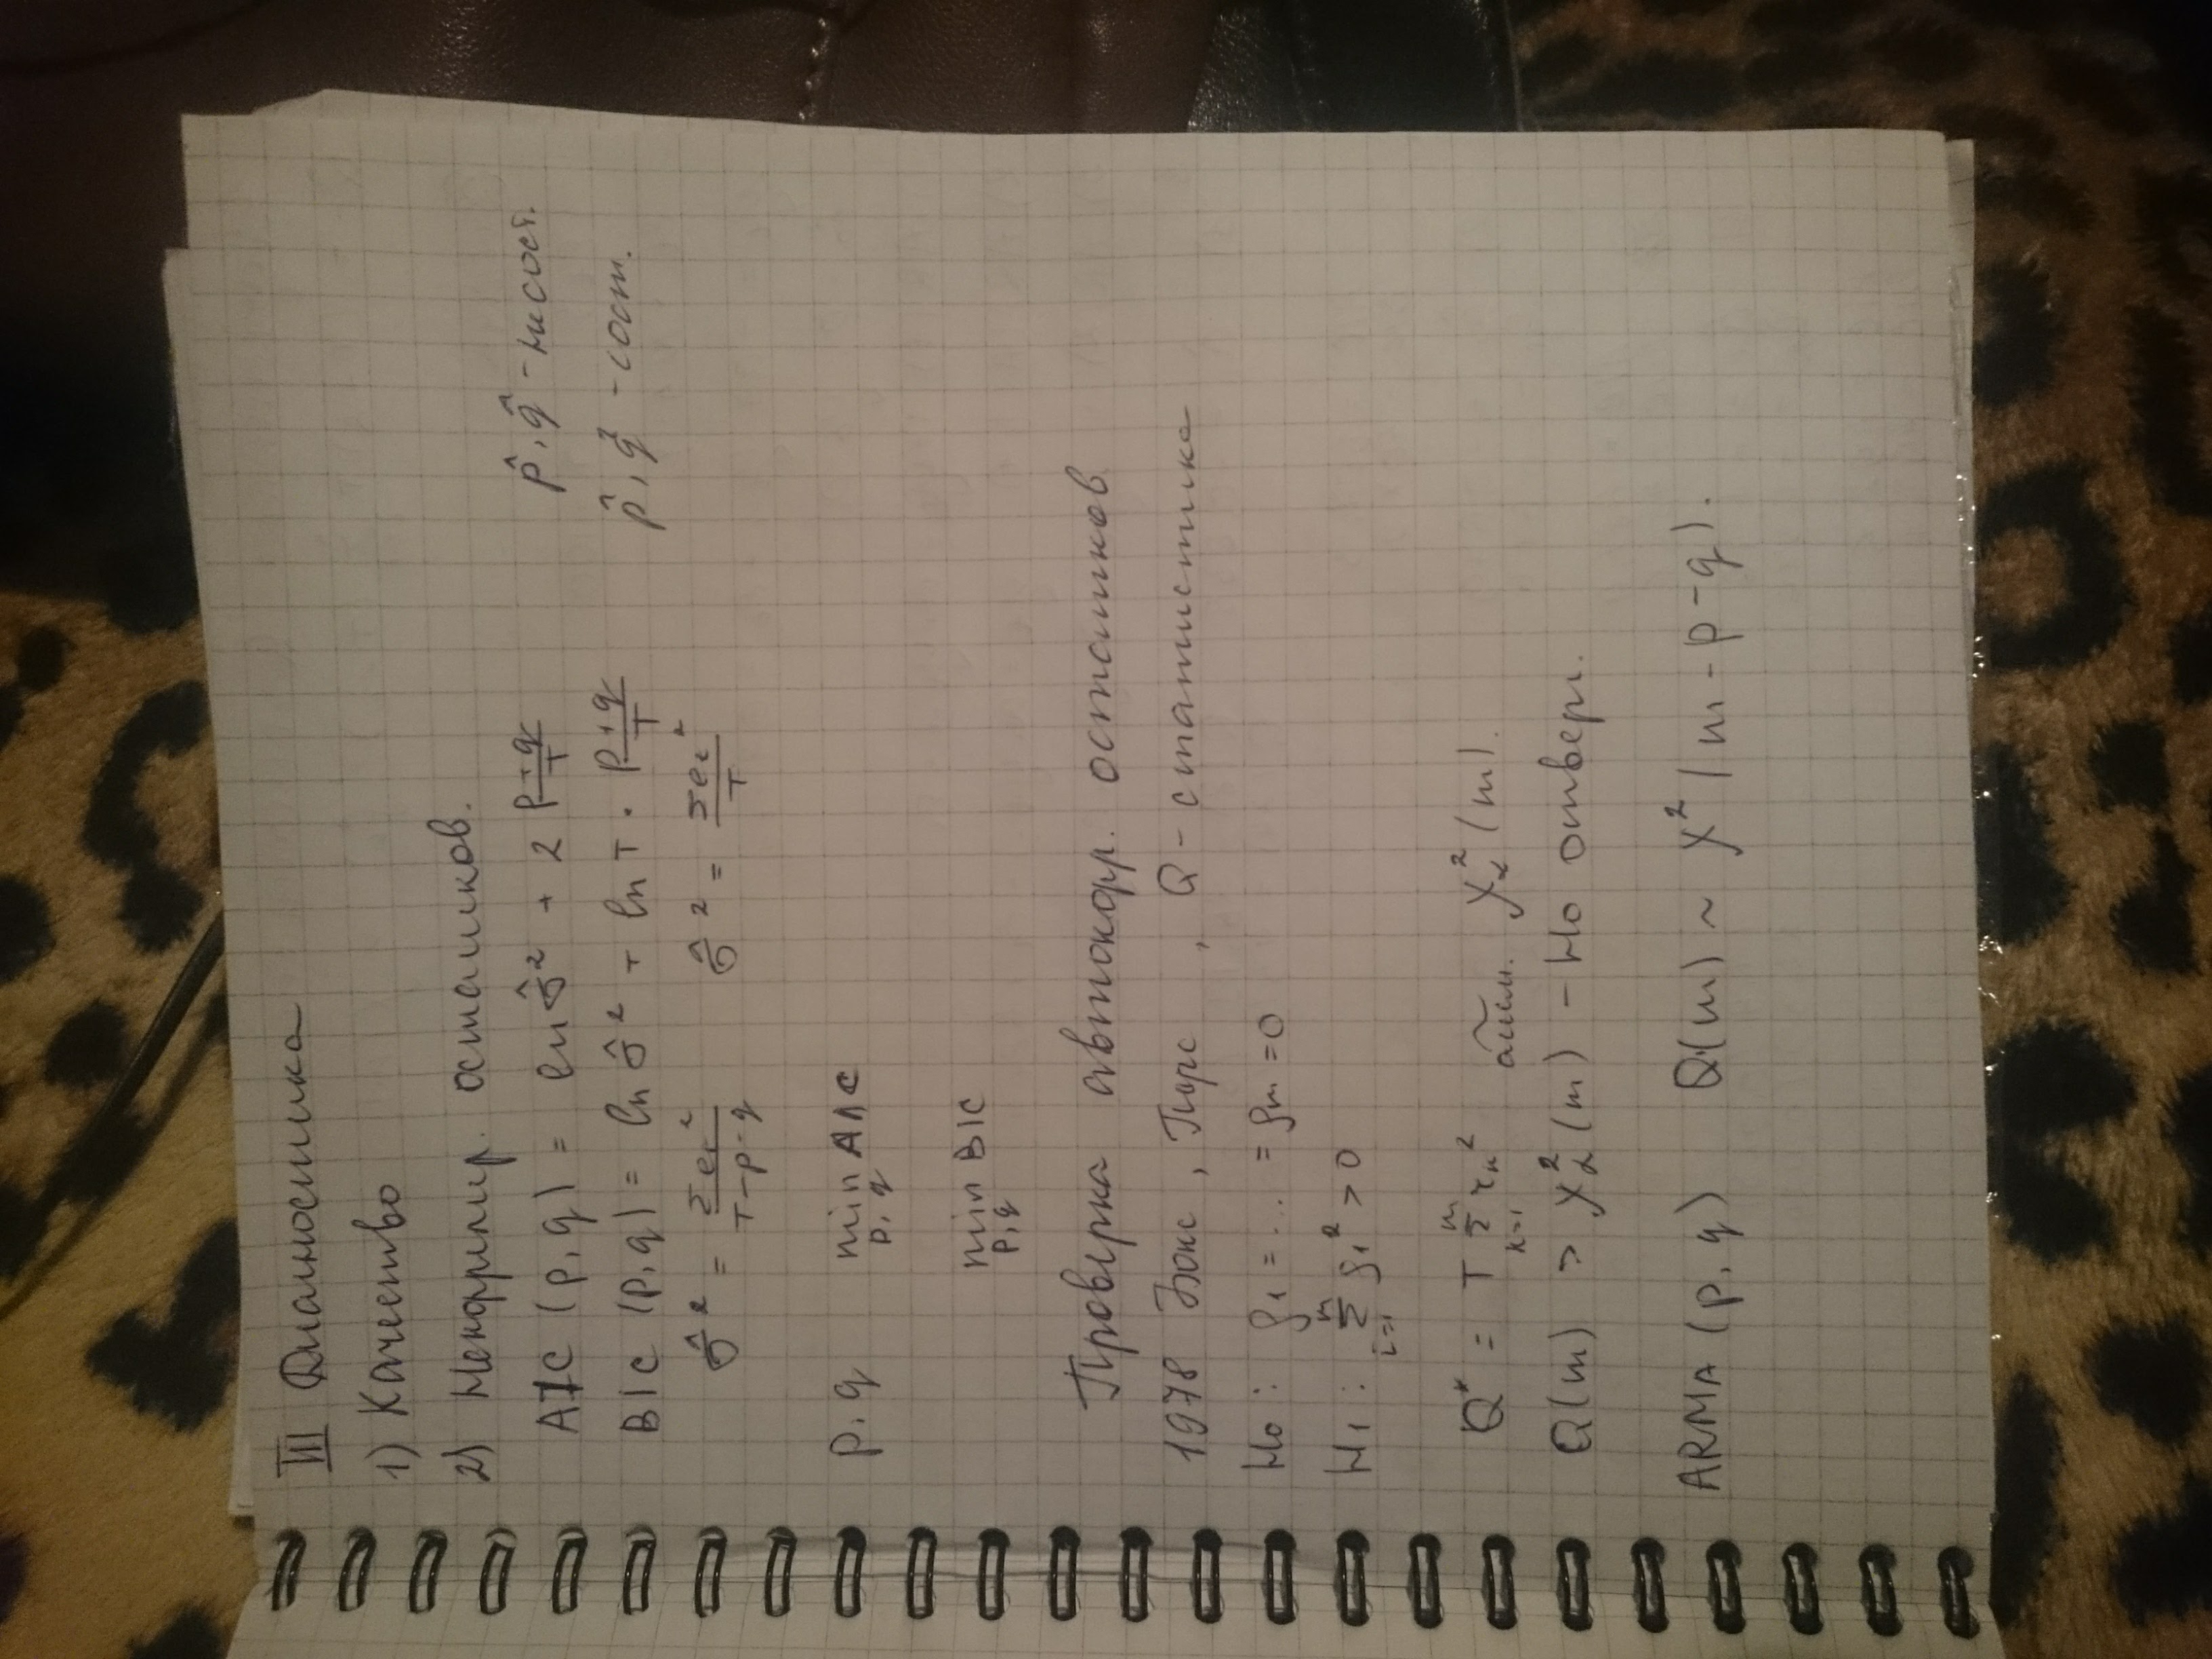 III Диагностика
1) Качество
2) Некоррелир. остатков.
AIC (p,q) = ln σ̂² + 2 (p+q)/T p̂, q̂ - несост.
BIC (p,q) = ln σ̂² + ln T · (p+q)/T p̂, q̂ - сост.
σ̂² = Σeₜ²/(T-p-q) σ̂² = Σeₜ²/T
p, q min p,q AIC
min p,q BIC
Проверка автокорр. остатков
1978 Бокс, Пирс, Q-статистика
H₀: ρ₁ = ... = ρm = 0
H₁: Σ i=1 m ρi² > 0
Q* = T Σ k=1 m rₖ² ~ асим. χ²α(m).
Q(m) > χ²α(m) - H₀ отверг.
ARMA (p,q) Q(m) ~ χ²(m-p-q).